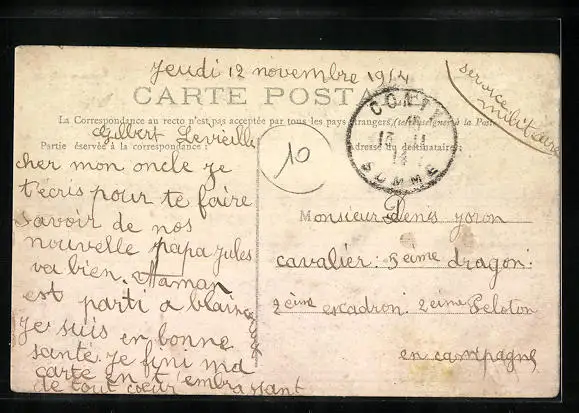 Jeudi 12 novembre 1914
service militaire
CARTE POSTALE
La Correspondance au recto n'est pas acceptée par tous les pays étrangers, (renseigner à la Poste
Gilbert Leveille
Partie réservée à la correspondance :
Adresse du destinataire :
CONTY
13 11
14
SOMME
10
cher mon oncle je
t'ecris pour te faire
savoir de nos
nouvelle papa jules
va bien. Maman
est parti a
Je suis en bonne
santé. je fini ma
carte en t'embrassant
de tout coeur
Monsieur Denis yoron
cavalier : 5eime dragon :
2eime escadron. 2eime Peloton
en campagne